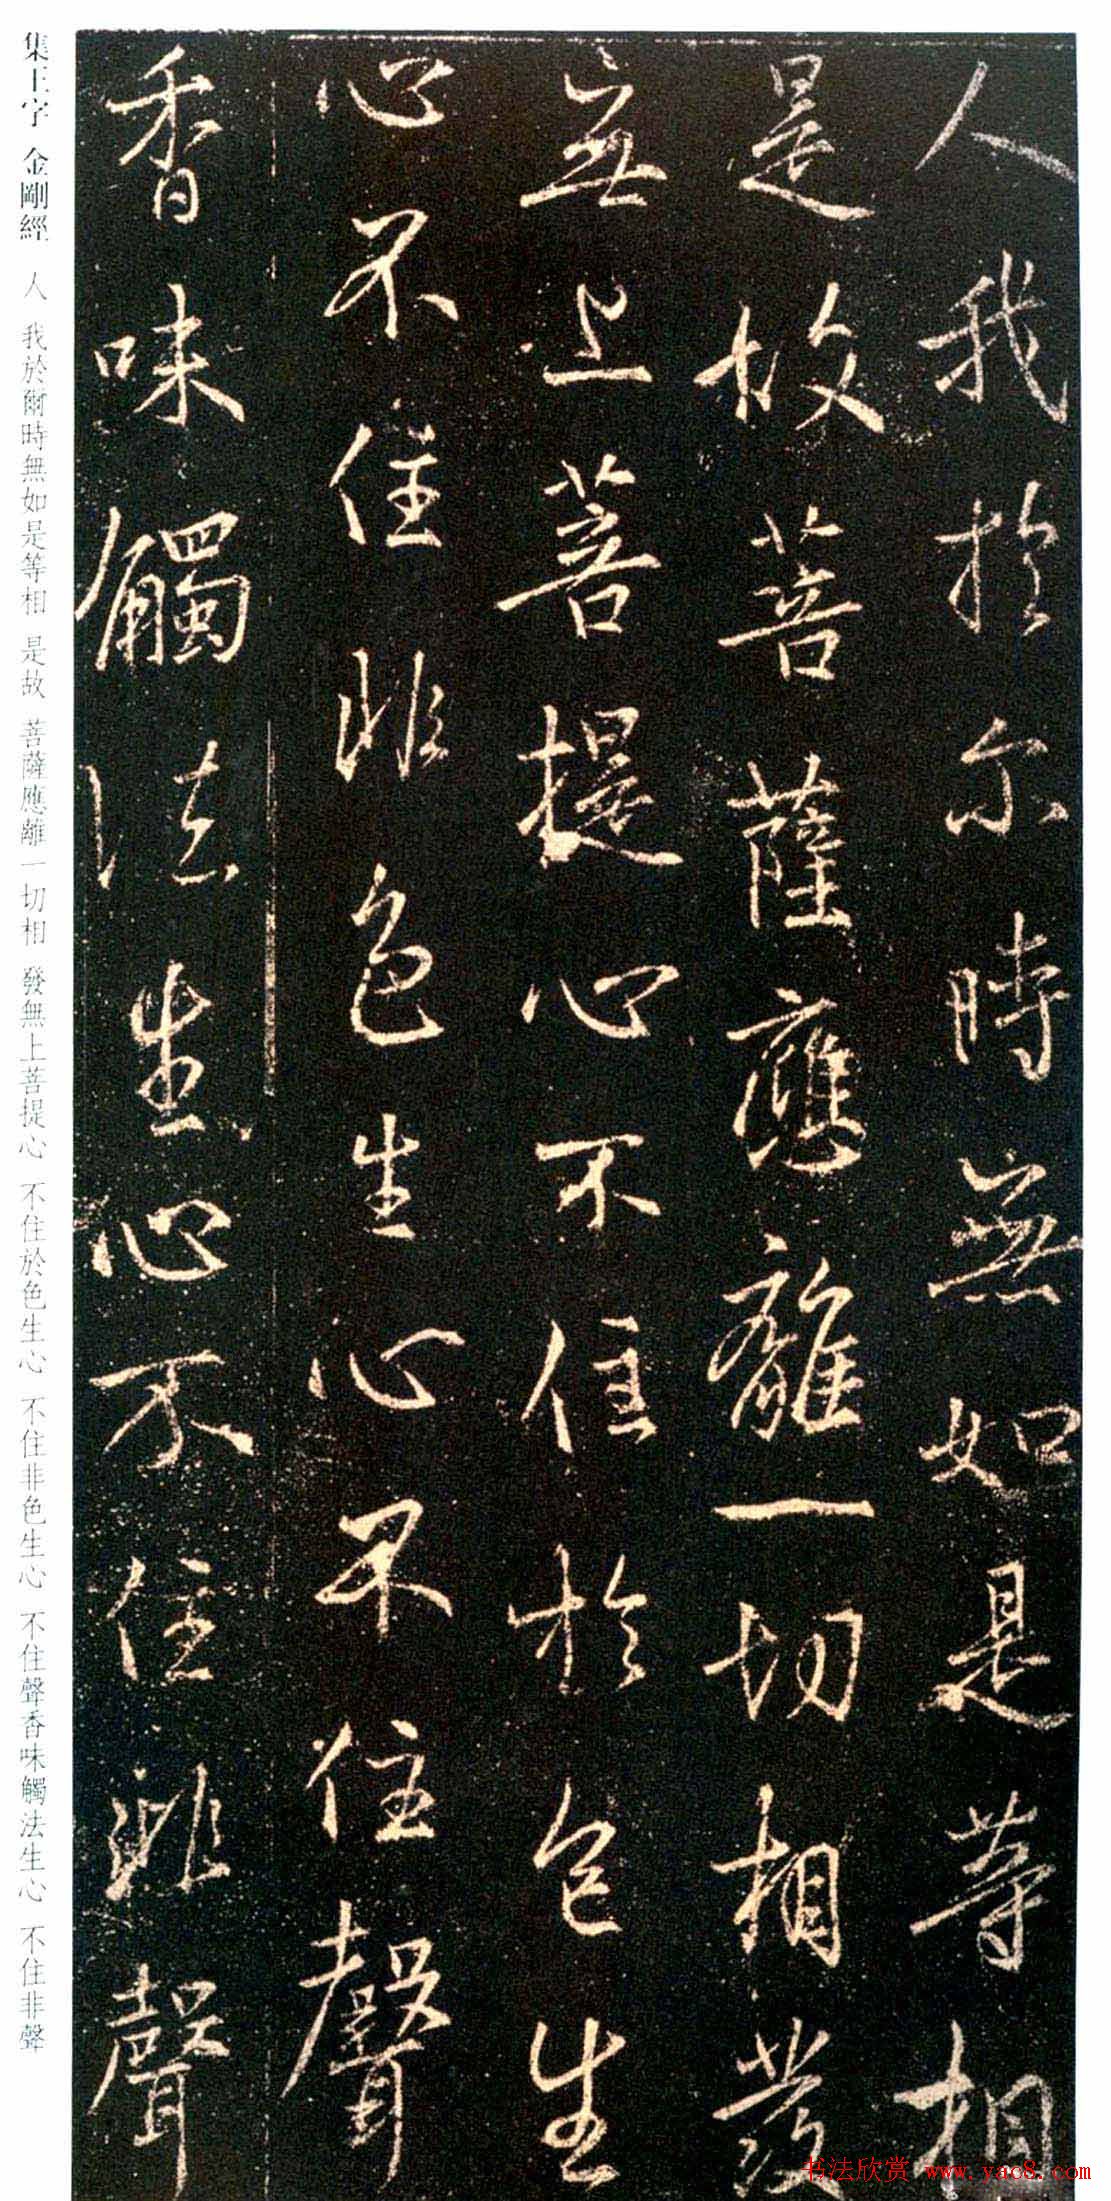 人我於尔時無如是等相
是故菩薩應離一切相發
無上菩提心不住於色生
心不住非色生心不住聲
香味觸法生心不住非聲
集王字 金剛經 人 我於爾時無如是等相 是故 菩薩應離一切相 發無上菩提心 不住於色生心 不住非色生心 不住聲香味觸法生心 不住非聲
书法欣赏 www.yac8.com